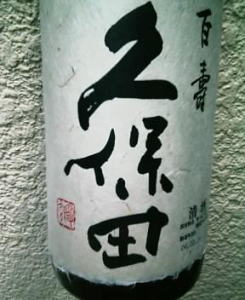 百壽
久保田
清酒